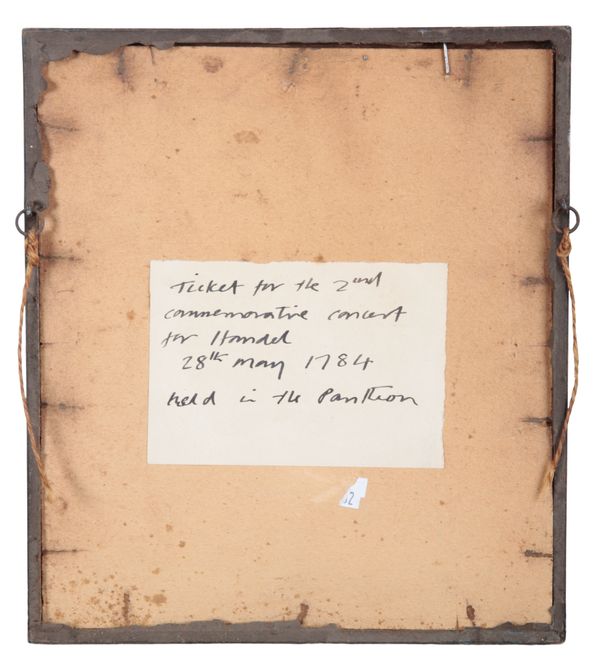 Ticket for the 2nd
commemorative concert
for Handel
28th May 1784
Held in the Pantheon
52